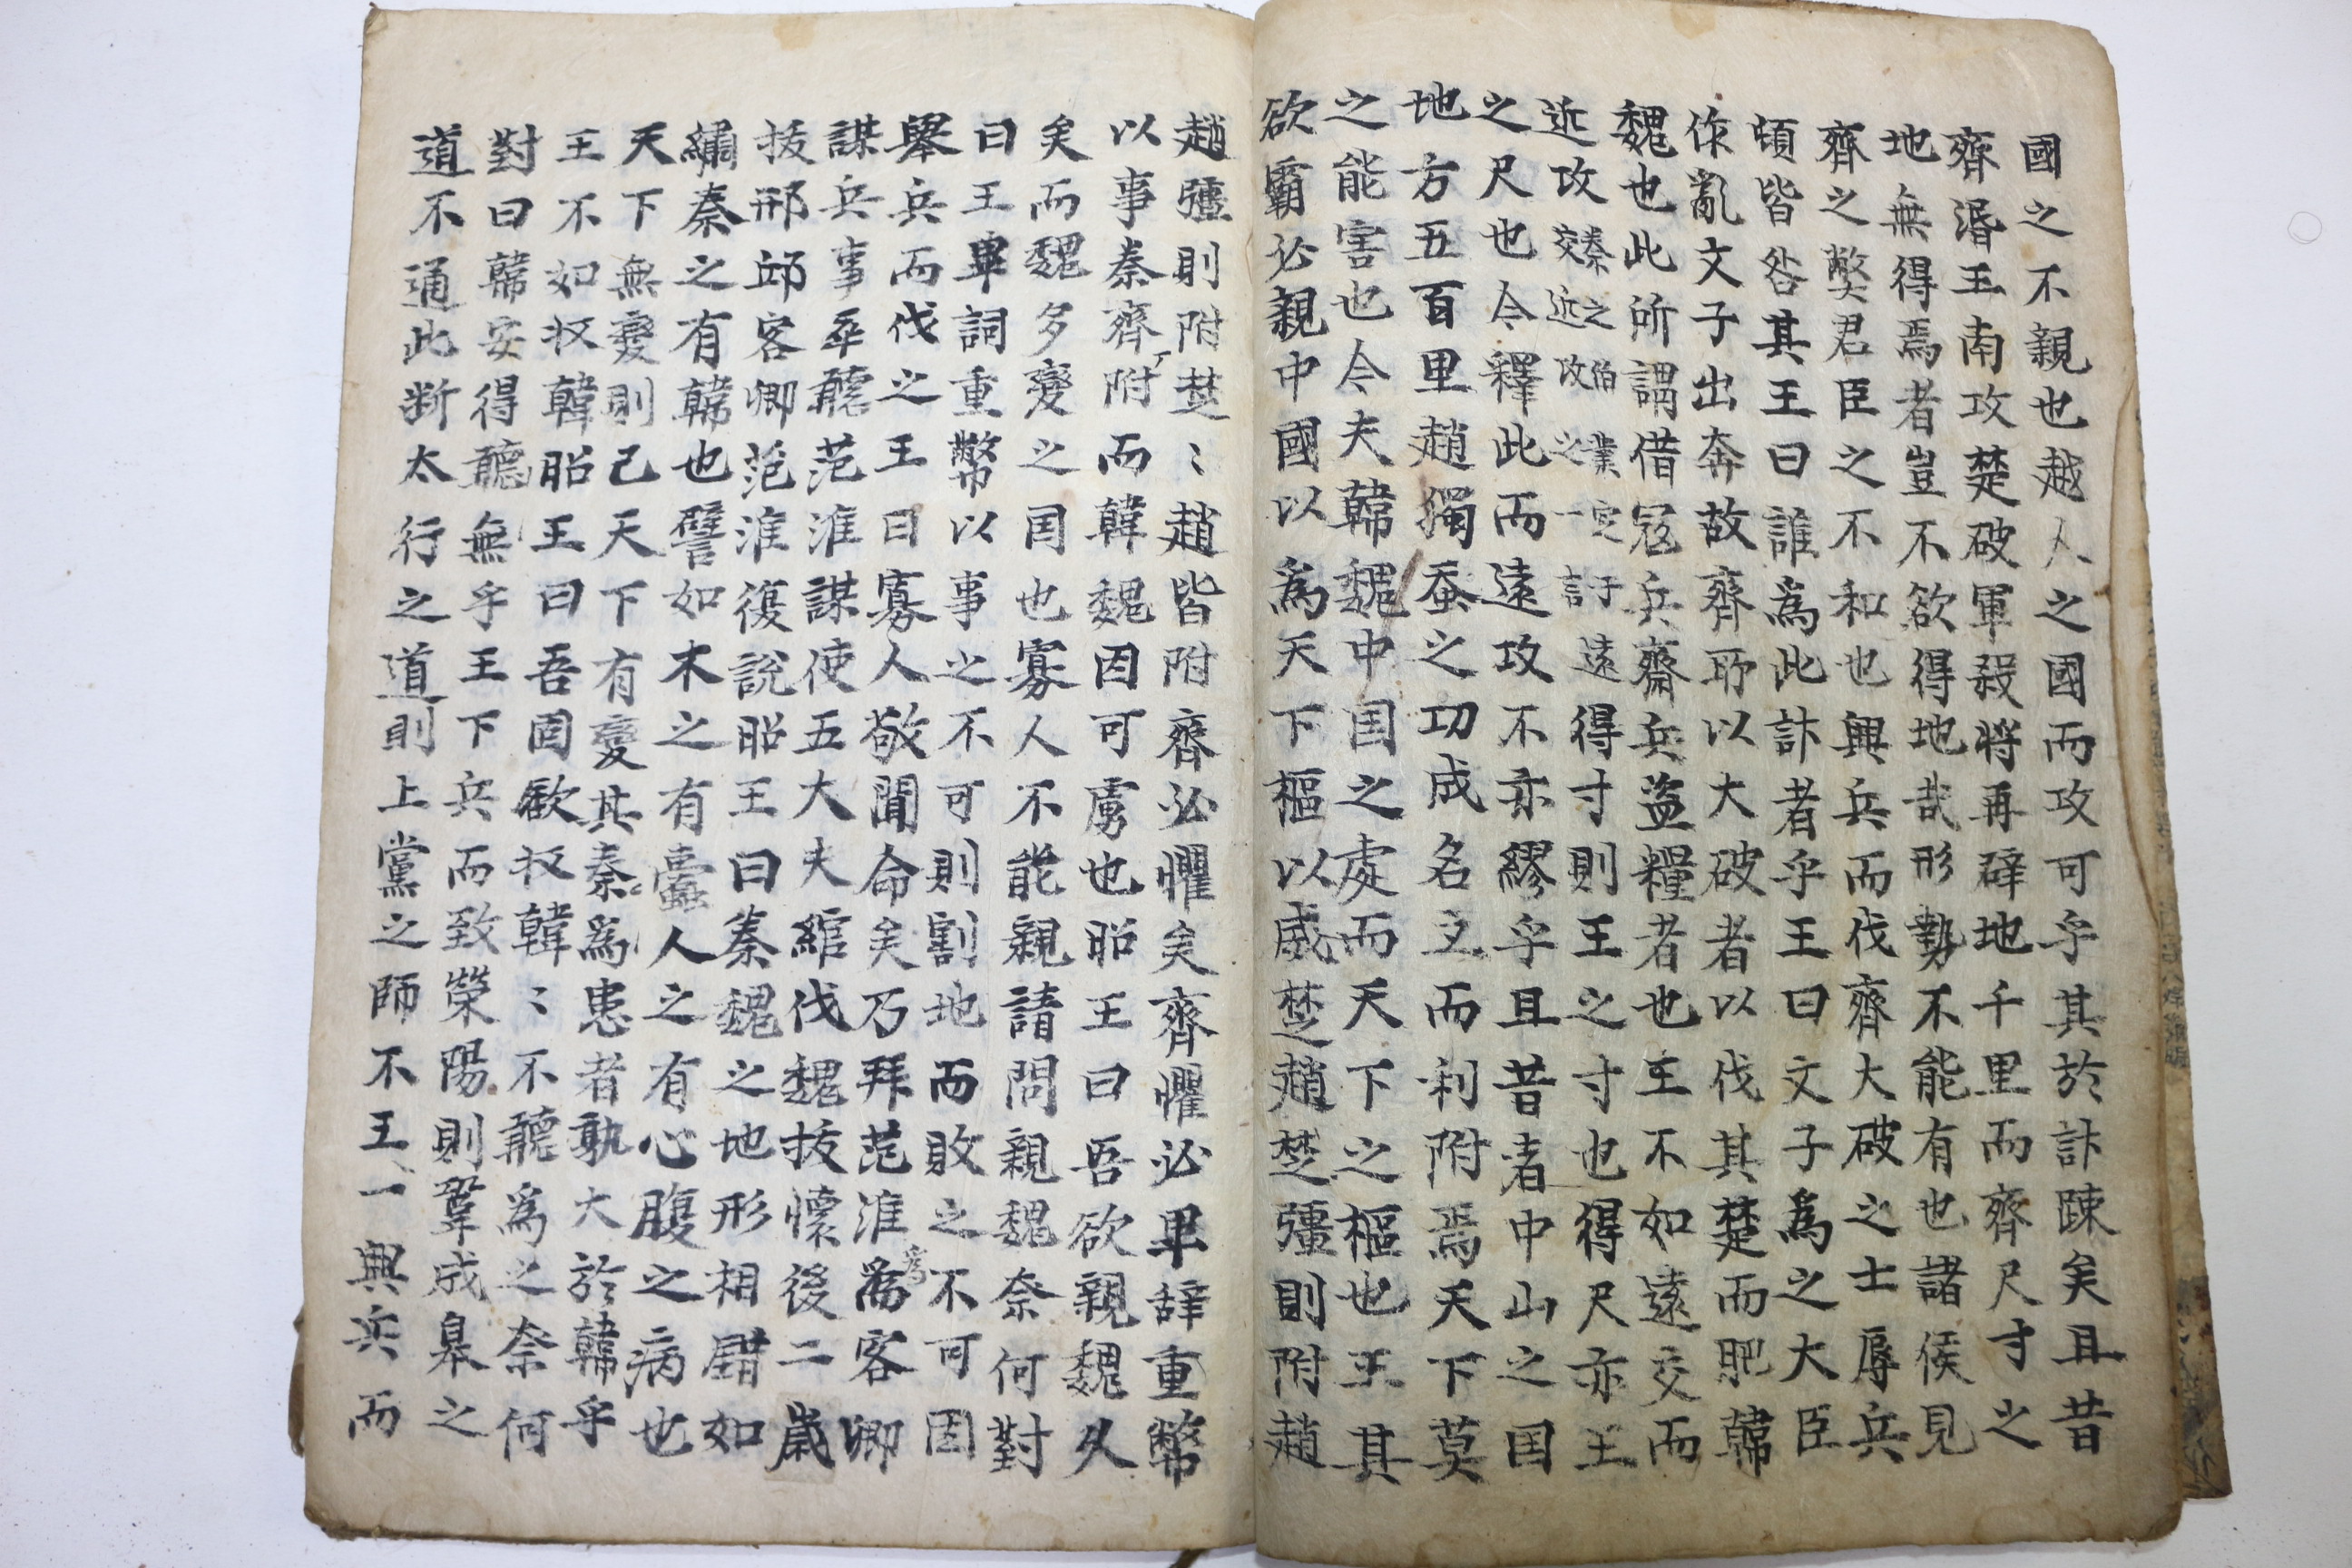 國之不親也越人之國而攻可乎其於計踈矣且昔
齊湣王南攻楚破軍殺將再辟地千里而齊尺寸之
地無得焉者豈不欲得地哉形勢不能有也諸侯見
齊之獘君臣之不和也興兵而伐齊大破之士辱兵
頓皆咎其王曰誰爲此計者乎王曰文子爲之大臣
作亂文子出奔故齊所以大破者以伐其楚而肥韓
魏也此所謂借寇兵齎兵盜糧者也王不如遠交而
近攻秦之伯業定于交近攻之一言遠得寸則王之寸也得尺亦王
之尺也今釋此而遠攻不亦繆乎且昔者中山之国
地方五百里趙獨吞之功成名立而利附焉天下莫
之能害也今夫韓魏中国之處而天下之樞也王其
欲霸必親中國以爲天下樞以威楚趙楚彊則附趙
趙彊則附楚〻趙皆附齊必懼矣齊懼必卑辞重幣
以事秦齊附而韓魏因可虜也昭王曰吾欲親魏久
矣而魏多變之国也寡人不能親請問親魏奈何對
曰王卑詞重幣以事之不可則割地而敗之不可因
舉兵而伐之王曰寡人敬聞命矣乃拜范淮爲客卿
謀兵事卒聽范淮謀使五大夫綰伐魏拔懷後二歲
拔邢邱客卿范淮復說昭王曰秦魏之地形相錯如
繡秦之有韓也譬如木之有蠹人之有心腹之病也
天下無變則已天下有變其秦爲患者孰大於韓乎
王不如收韓昭王曰吾固欲收韓〻不聽爲之奈何
對曰韓安得聽無乎王下兵而致榮陽則鞏成臯之
道不通此断太行之道則上黨之師不王一興兵而